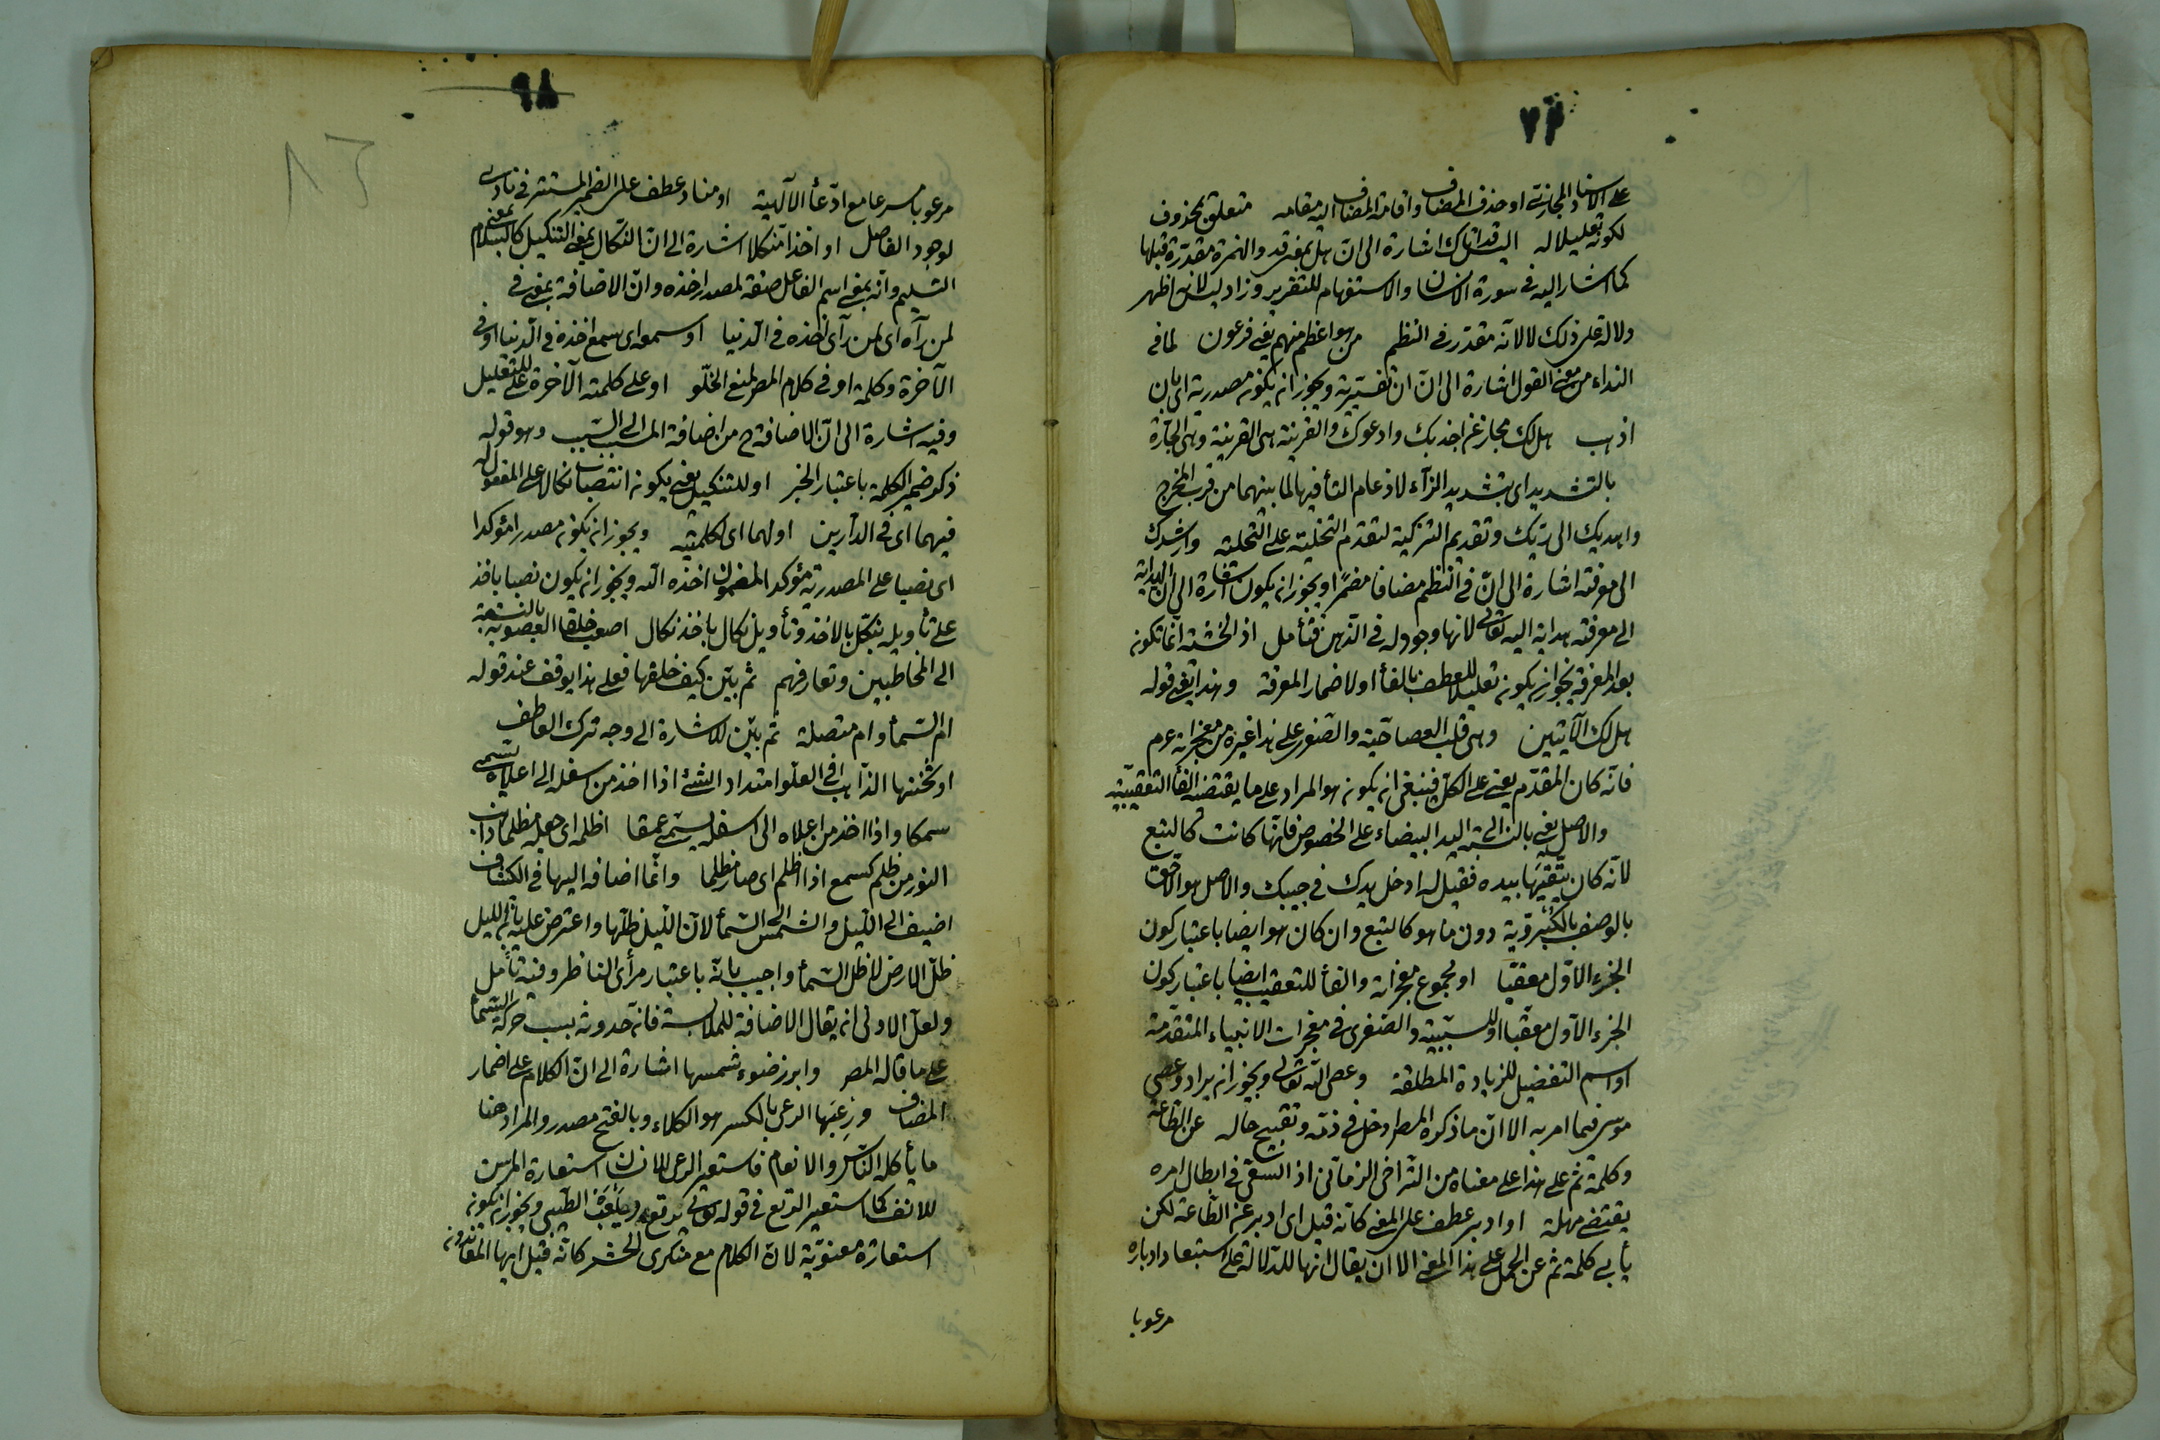 ٧٣
على الاسناد المجازى او حذف المضاف واقامة المضاف اليه مقامه متعلق بمحذوف
لكونه تعليلا له اليس قد اتاك اشارة الى ان هل بمعنى قد والهمزة مقدرة قبلها
كما اشار اليه فى سورة الانسان والاستفهام للتقرير وزاد ليس لانه اظهر
دلالة على ذلك لا لانه مقدر فى النظم من هو اعظم منهم يعنى فرعون لما فى
النداء من معنى القول اشارة الى ان ان تفسيرية ويجوز ان يكون مصدرية اى بان
اذهب هل لك مجاز عن اجذبك وادعوك والقرينة هى القرينة وهى الجارة
بالتشديد اى بتشديد الزاء لادغام التأ فيها لما بينهما من قرب المخرج
واهديك الى ربك وتقديم التزكية لتقدم التخلية على التحلية وارشدك
الى معرفته اشارة الى ان فى النظم مضافا مضمرا ويجوز ان يكون اشارة الى ان الهداية
الى معرفته هداية اليه تعالى لانها وجود له فى الذهن فتأمل اذ الخشية انما تكون
بعد المعرفة يجوز ان يكون تعليلا للعطف بالفأ او لاضمار المعرفة وهذا يعنى قوله
هل لك الآيتين وهى قلب العصا حية والصغرى على هذا غيره من معجزاته عم
فانه كان المقدم يعنى على الكل فينبغى ان يكون هو المراد على ما يقتضيه الفأ التعقيبية
والاصل يعنى بالنسبة الى اليد البيضاء على الخصوص فانها كانت كالتبع
لانه كان يتقيها بيده فقيل له ادخل يدك فى جيبك والاصل هو الاحق
بالوصف بالكبروية دون ما هو كالتبع وان كان هو ايضا باعتبار كون
الجزء الاول معقبا او مجموع معجزاته والفأ للتعقيب ايضا باعتبار كون
الجزء الاول معقبا او للسببية والصغرى فى معجزات الانبياء المتقدمة
او اسم التفضيل للزيادة المطلقة وعصى الله تعالى ويجوز ان يراد وعصى
موسى فيما امر به الا ان ما ذكره المص ادخل فى ذمه وتقبيح حاله عن الطاعة
وكلمة ثم على هذا على معناه من التراخى الزمانى اذ السعى فى ابطال امره
يقتضى مهلة او ادبر عطف على المعنى كانه قيل اى ادبر عن الطاعة لكن
يأبى كلمة ثم عن الحمل على هذا المعنى الا ان يقال انها للدلالة على استبعاد ادباره
مرعوبا
٩٨
٨٦
مرعوبا مسرعا مع ادعأ الالهية او مناد عطف على الضمير المستتر فى نادى
لوجود الفاصل او اخذا منكلا اشارة الى ان النكال بمعنى التنكيل كالسلام بمعنى
التسليم وانه بمعنى اسم الفاعل صفة لمصدر اخذه وان الاضافة بمعنى فى
لمن رآه اى لمن رآى اخذه فى الدنيا او سمعه اى سمع اخذه فى الدنيا او فى
الآخرة وكلمة او فى كلام المص لمنع الخلو او على كلمته الآخرة على للتعليل
وفيه اشارة الى ان الاضافة ح من اضافة المسبب الى السبب وهو قوله
ذكر ضمير الكلمة باعتبار الخبر او للتنكيل يعنى يكون انتصاب نكالا على المفعول له
فيهما اى فى الدارين او لهما اى لكلمتيه ويجوز ان يكون مصدرا مؤكدا
اى نصبا على المصدرية مؤكدا لمضمون اخذه الله ويجوز ان يكون نصبا باخذ
على تأويله بنكل بالاخذ وتأويل نكال باخذ نكال اصعب خلقا الصعوبة بالنسبة
الى المخاطبين وتعارفهم ثم بين كيف خلقها فعلى هذا يوقف عند قوله
ام السمأ وام متصلة ثم بين للاشارة الى وجه ترك العاطف
او ثخنها الذاهب فى العلو امتداد الشئ اذا اخذ من اسفله الى اعلاه يسمى
سمكا واذا اخذ من اعلاه الى اسفله يسمى عمقا اظلمه اى جعله مظلما ذاهب
النور من ظلم كسمع اذا اظلم اى صار مظلما وانما اضافه اليها فى الكشاف
اضيف الى الليل والشمس الى السمأ لان الليل ظلها واعترض عليه بان الليل
ظل الارض لا ظل السمأ واجيب بانه باعتبار مرأى الناظر وفيه تأمل
ولعل الاولى ان يقال الاضافة للملابسة فانه حدوثه بسبب حركة السمأ
على ما قاله المص وابرز ضوء شمسها اشارة الى ان الكلام على اضمار
المضاف ورعيها الرعى بالكسر هو الكلاء وبالفتح مصدر والمراد هنا
ما يأكله الناس والانعام فاستعير الرعى للانسان استعارة المرسن
للانف كما استعير الرتع فى قوله تعالى يرتع ويلعب الطيبى ويجوز ان يكون
استعارة معنوية لان الكلام مع منكرى الحشر كانه قيل ايها المعاندون